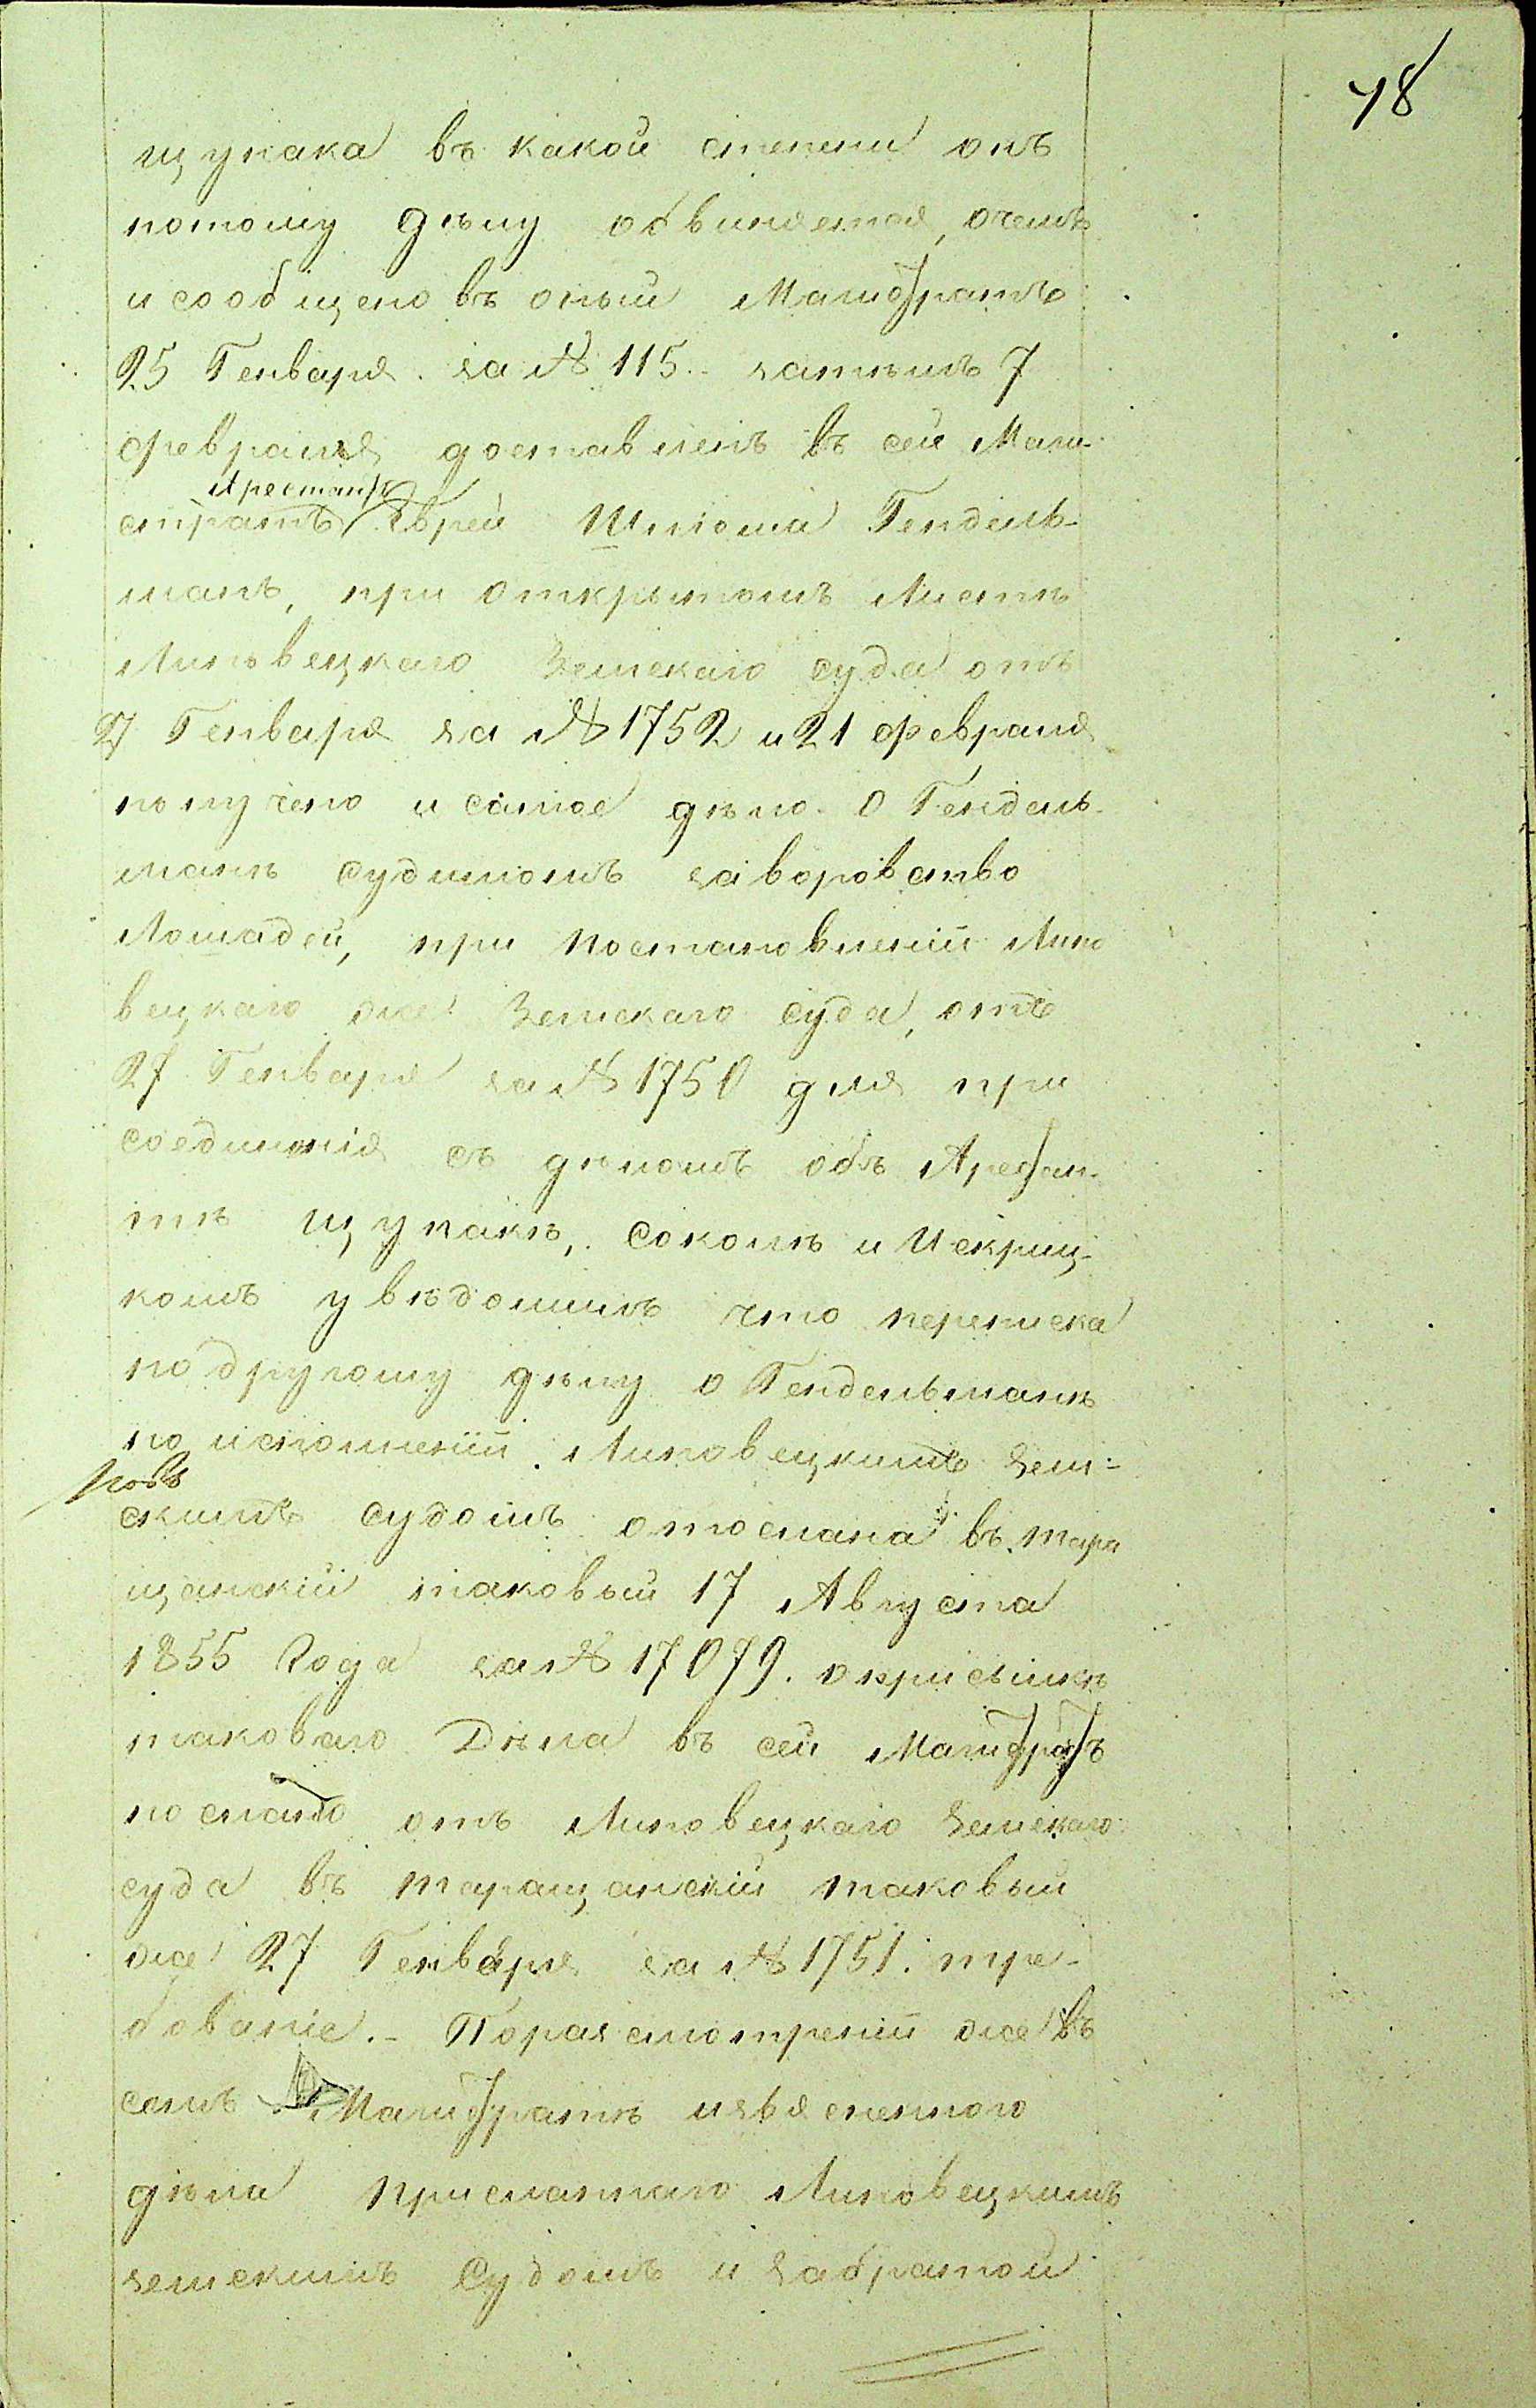 48
щупака въ какой степени онъ
потому дѣлу обвиняется, очемъ
и сообщено въ оный Магистратъ
25 Генваря за № 115. – затѣмъ 7
февраля доставленъ въ сей Маги-
Арестантъ
стратъ Еврей Шлiома Гендель-
манъ, при открытомъ Листѣ
Липовецкаго Земскаго суда отъ
27 Генваря за № 1752 и 21 февраля
получено и самое дѣло о Гендель-
манѣ судимомъ за воровство
Лошадей, при постановленiи Липо
вецкаго же Земскаго суда, отъ
27 Генваря за № 1750 для при
соединенiя съ дѣломъ объ Арестан-
тѣ щупакѣ, Соколѣ и Искриц-
комъ увѣдомивъ что переписка
по другому дѣлу о Гендельманѣ
по исполненiи Липовецкимъ Зем-
скимъ судомъ отослана въ тара
щанскiй таковый 17 Августа
1855 Года за № 17079. о присылкѣ
таковаго Дѣла въ сей Магистратъ
послано отъ Липовецкаго Земскаго
суда въ таращанскiй таковый
же 27 Генваря за № 1751. тре-
бованiе. – По разсмотренiи же въ
семъ Магистратѣ изъясненного
дѣла присланнаго Липовецкимъ
земскимъ Судомъ и забратой